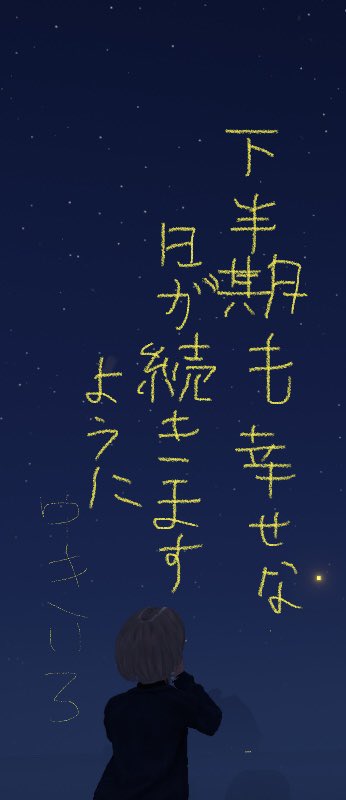 下半期も幸せな
日が続きます
ように
ゆきいろ